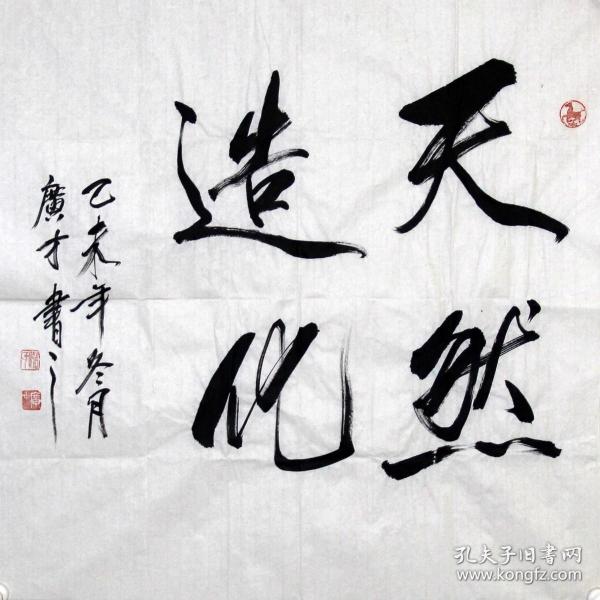 天然
造化
乙未年冬月
廣才書
孔夫子旧书网
www.kongfz.com